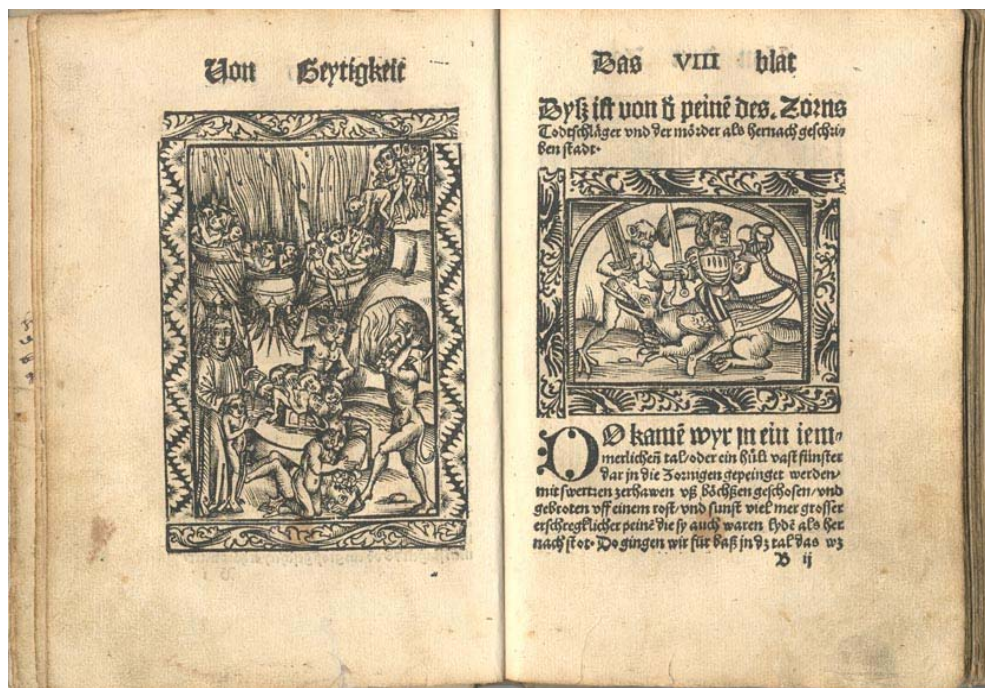 Von Geytigkeit
Das VIII blat
Dysz ist von d̄ peinē des. Zorns
Todtschläger vnd der mörder als hernach geschri⸗
ben stadt.
DO kamē wyr in ein iem⸗
merlichen̄ tal/oder ein hüli vast finster
dar in die Zornigen gepeinget werden/
mit swertzen zerhawen vß böchßen geschosen/vnd
gebroten vff einem rost/vnd sunst viel mer grosser
erschregklicher peinē die sy auch waren lydē als her
nach stot. Do gingen wir für baß in dz tal das wz
B ij